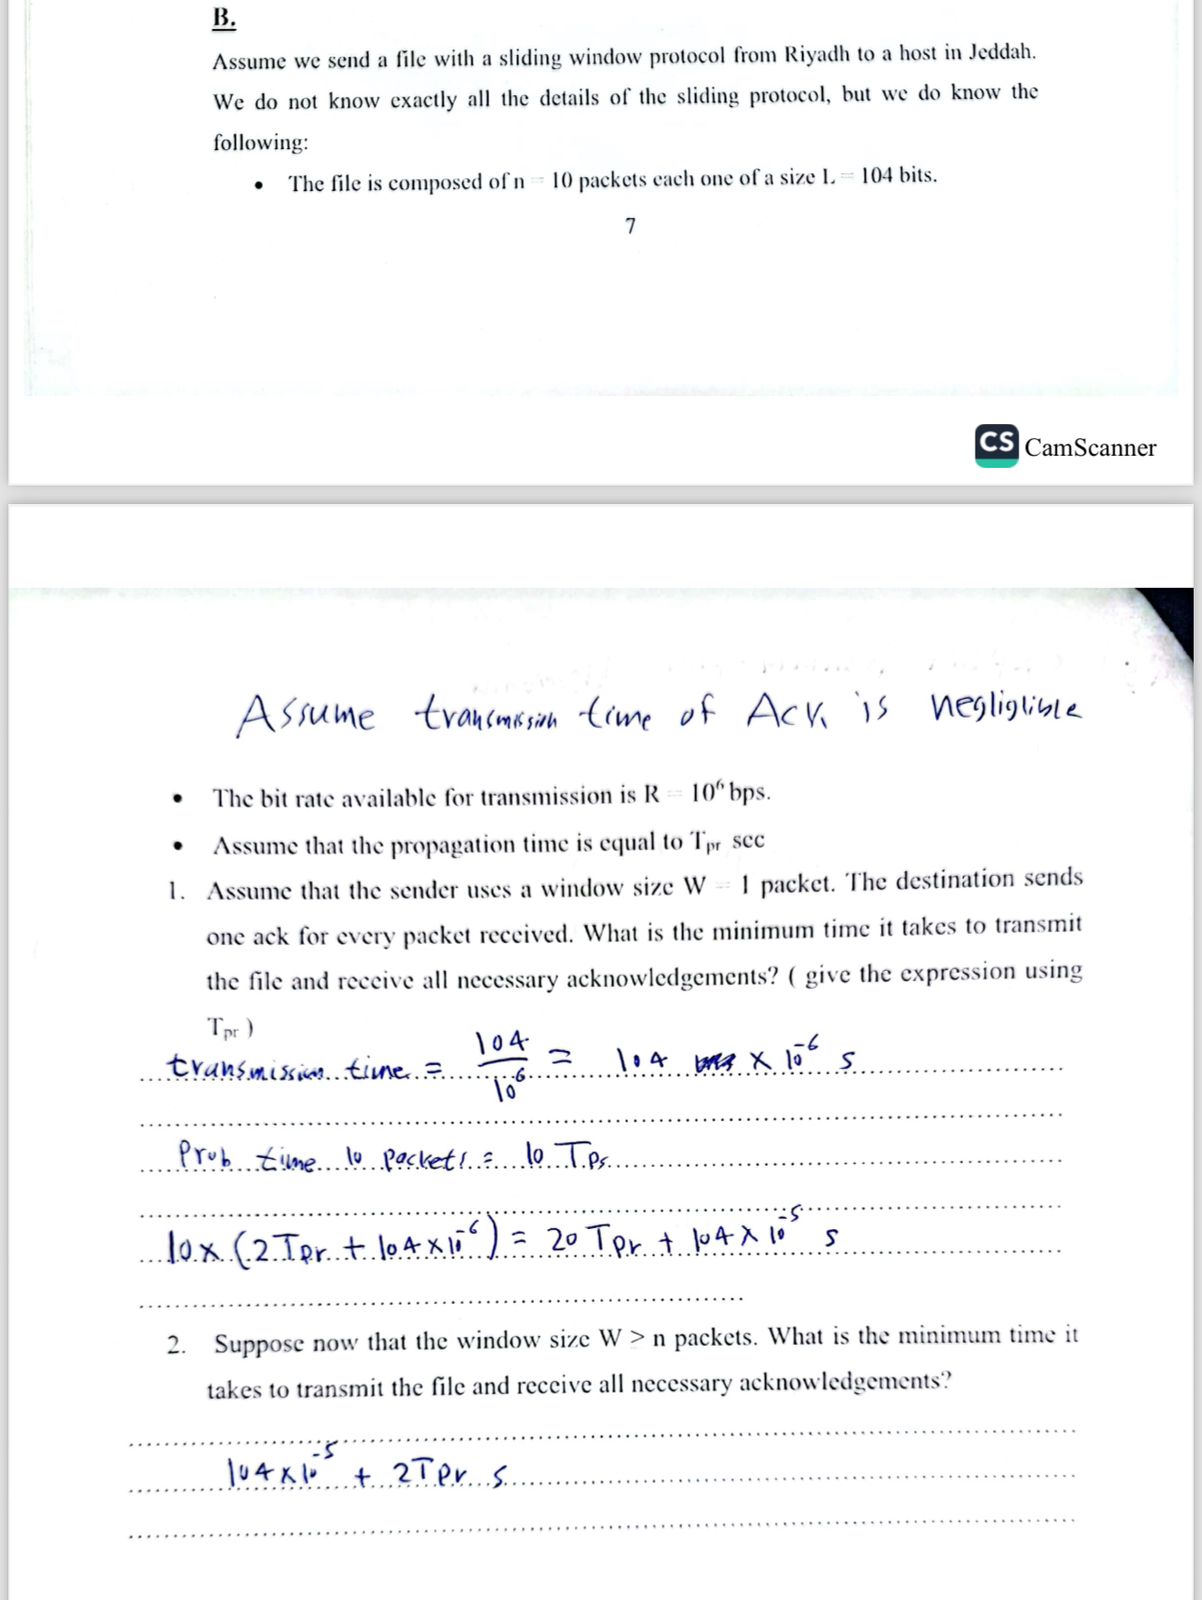 B.
Assume we send a file with a sliding window protocol from Riyadh to a host in Jeddah.
We do not know exactly all the details of the sliding protocol, but we do know the
following:
• The file is composed of n = 10 packets each one of a size L = 104 bits.
7
CS CamScanner
Assume transmission time of Ack is negligible
• The bit rate available for transmission is R = 10⁶ bps.
• Assume that the propagation time is equal to Tpr sec
1. Assume that the sender uses a window size W = 1 packet. The destination sends
one ack for every packet received. What is the minimum time it takes to transmit
the file and receive all necessary acknowledgements? ( give the expression using
Tpr )
transmission time = 104/10⁶ = 104 x 10⁻⁶ s
Prob time 10 packets = 10 Tpr
10x (2Tpr + 104x10⁻⁶) = 20 Tpr + 104 x 10⁻⁵ s
2. Suppose now that the window size W > n packets. What is the minimum time it
takes to transmit the file and receive all necessary acknowledgements?
104x10⁻⁵ + 2Tpr s